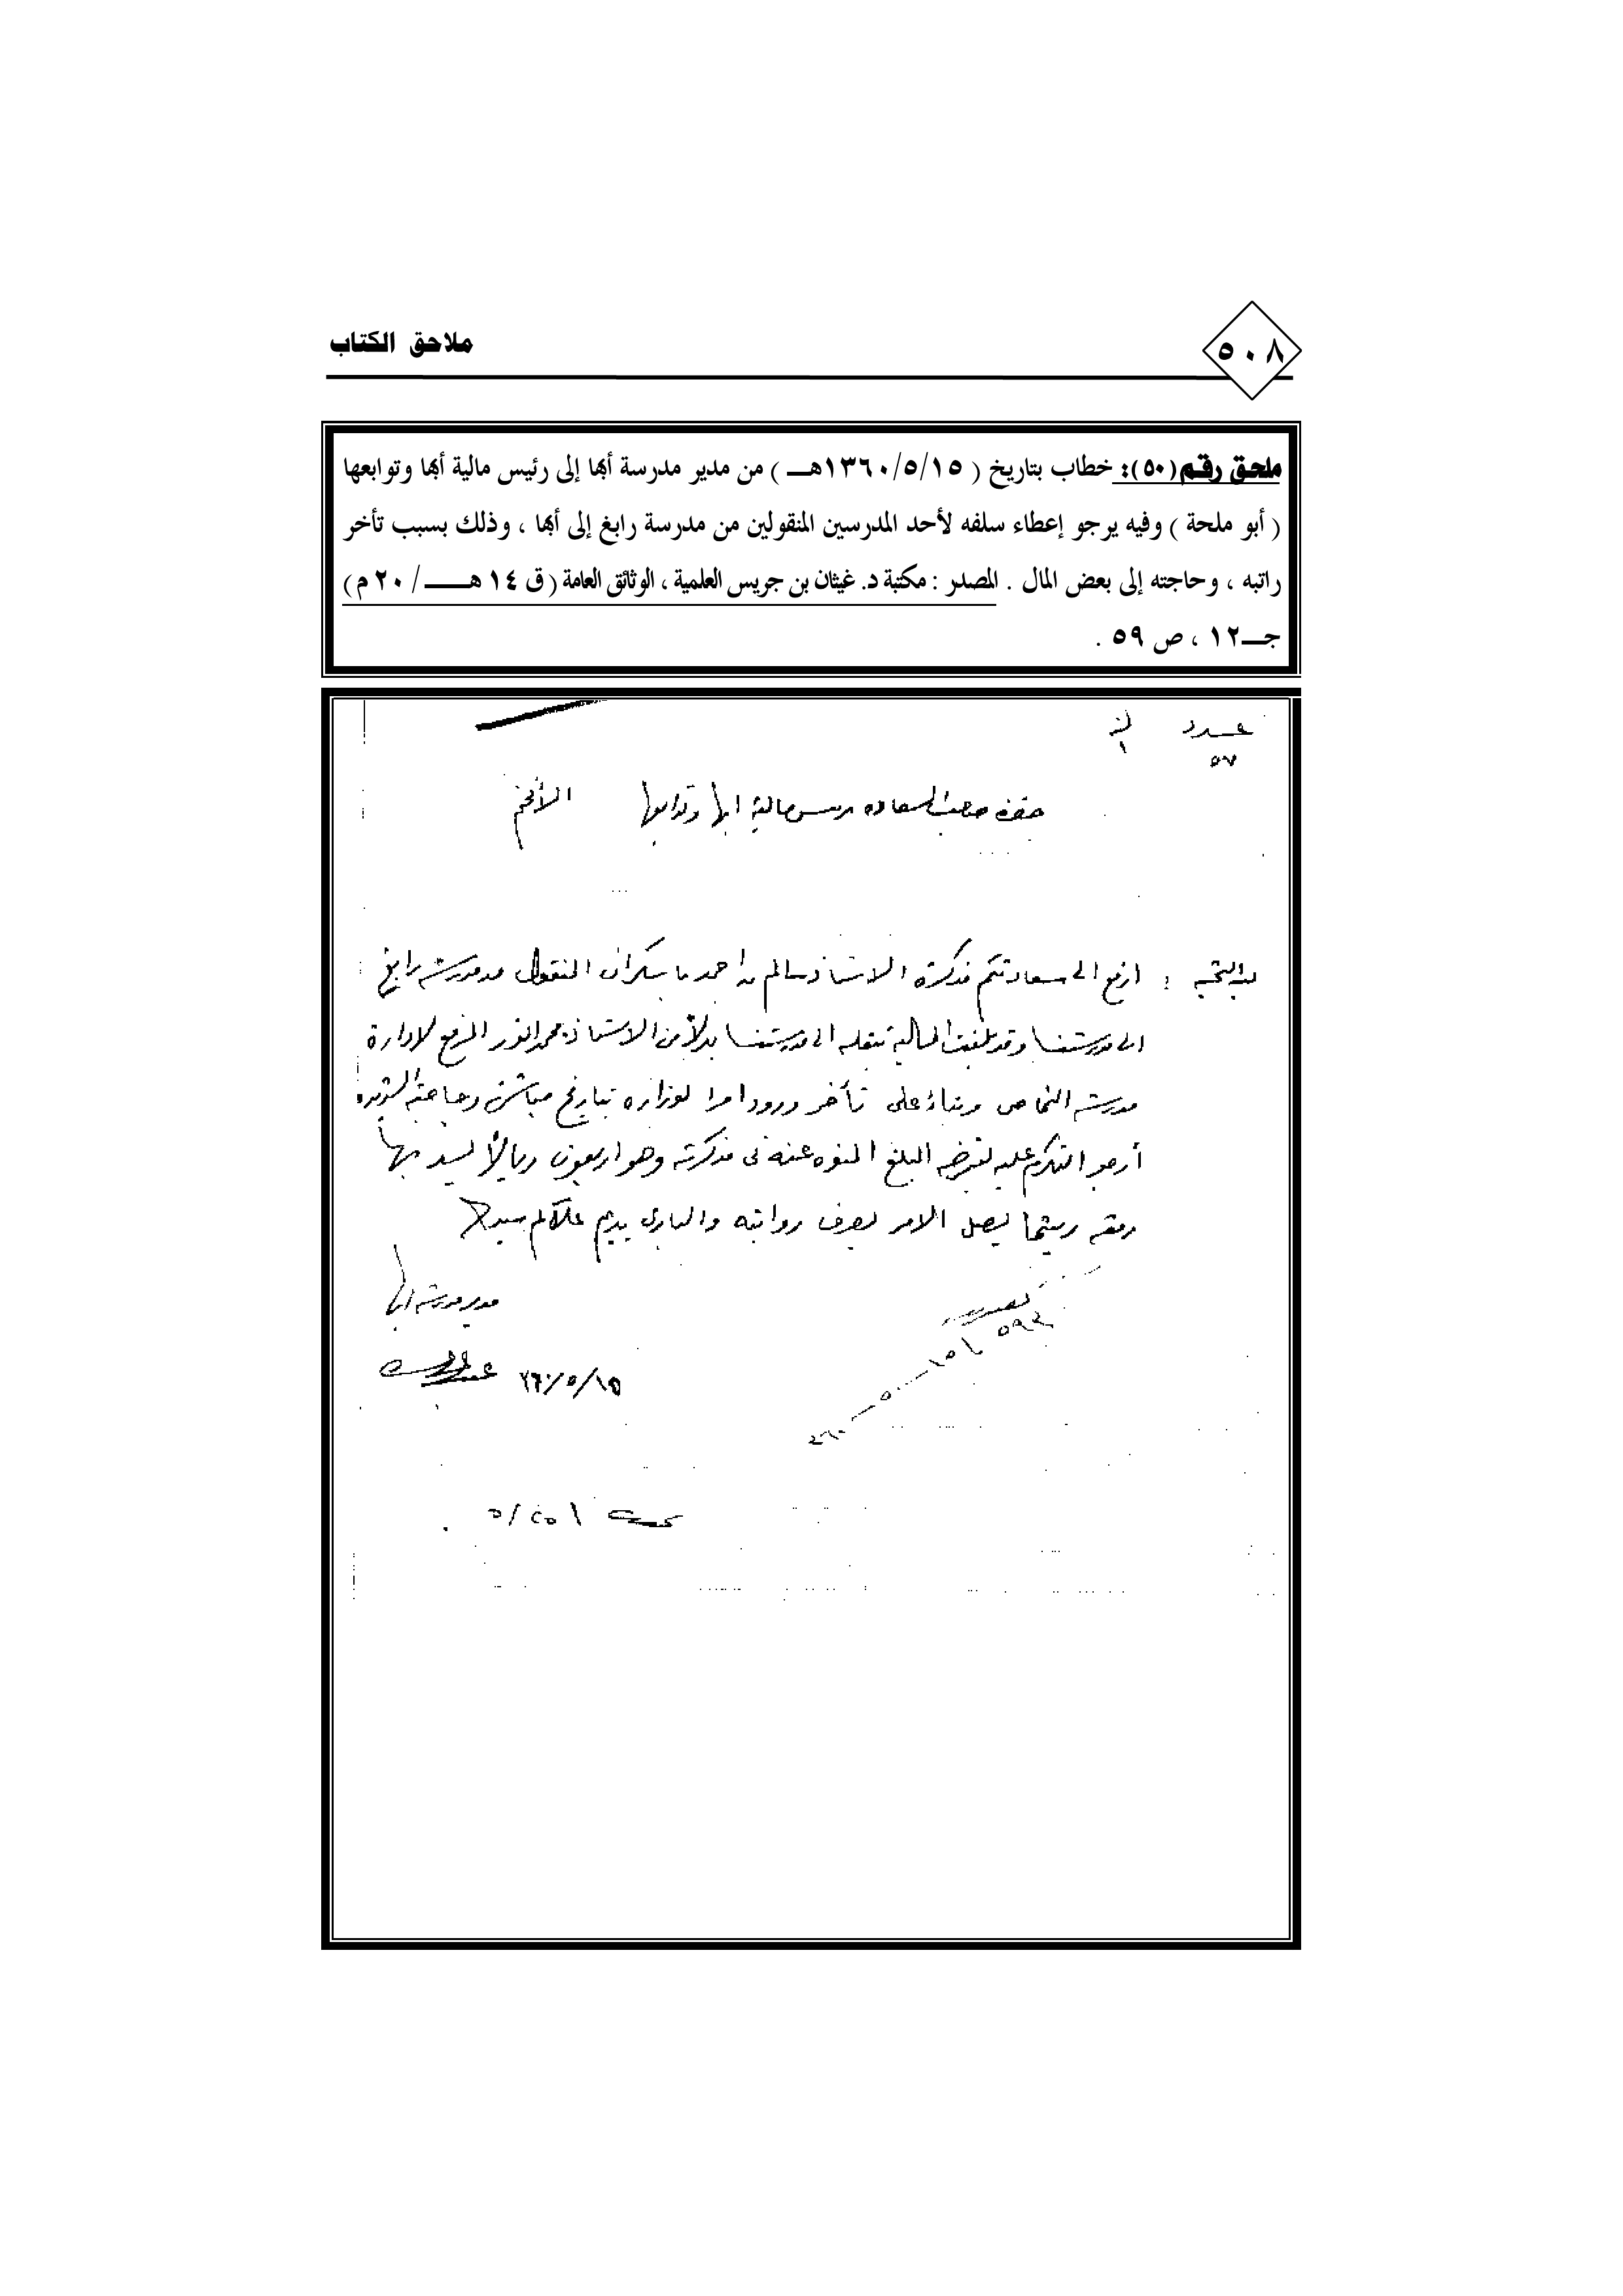 ٥٠٨
ملاحق الكتاب
ملحق رقم(٥٠): خطاب بتاريخ ( ١٣٦٠/٥/١٥هـــ ) من مدير مدرسة أبها إلى رئيس مالية أبها وتوابعها
( أبو ملحة ) وفيه يرجو إعطاء سلفه لأحد المدرسين المنقولين من مدرسة رابغ إلى أبها ، وذلك بسبب تأخر
راتبه ، وحاجته إلى بعض المال . المصدر : مكتبة د. غيثان بن جريس العلمية ، الوثائق العامة ( ق ١٤ هـــــ / ٢٠ م )
جـــ١٢ ، ص ٥٩ .
عدد
٥٧ ١
حضرة صاحب السعاده رئيس مالية ابها وتوابعها الأفخم
بعد التحيه : ارفع الى سعادتكم مذكرة الاستاذ سالم بن احمد باسكران المنقول من مدرسة رابغ
الى مدرستنا وقد بلغت المالية بنقله الى مدرستنا بدلاً من الاستاذ محمد انور المرفع لادارة
مدرسة النماص وبناءً على تأخر ورود امر الوزاره بتاريخ مباشرته وحاجته الشديده
أرجو التكرم عليه المبلغ المنوه عنه فى مذكرته وهو اربعون ريالاً ليسد بها
رمقه ريثما يصل الامر لصرف رواتبه والبارى يديم علاكم سيدى
مدير مدرسة ابها
٣٦٠/٥/١٥